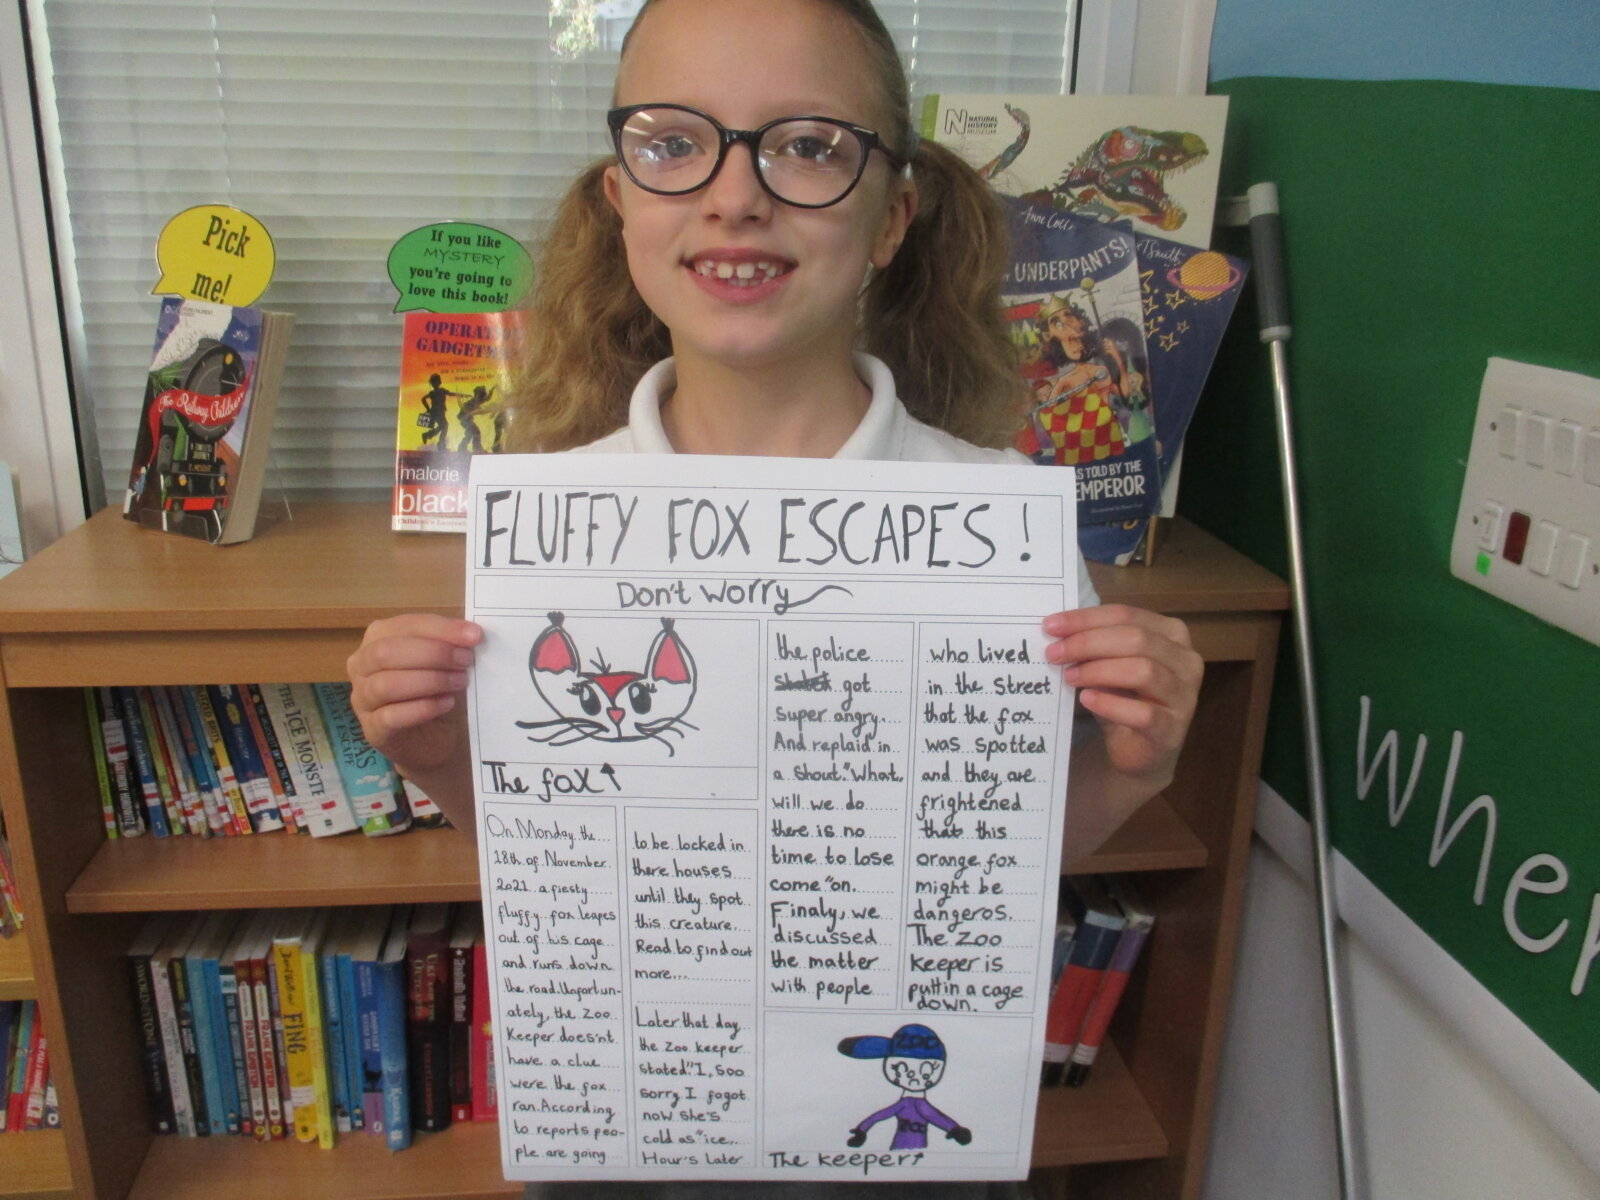 FLUFFY FOX ESCAPES!
Don't worry
The fox
On Monday the
18th of November
2021 a fiesty
fluffy fox leapes
out of his cage
and runs down
the road.Unfortun-
ately, the zoo
Keeper does'nt
have a clue
were the fox
ran.According
to reports peo-
ple are going
to be locked in
there houses
until they spot
this creature.
Read to find out
more...
Later that day
the zoo keeper
stated."I, soo
sorry I fogot
now she's
cold as "ice..
Hour's Later
the police
got
super angry.
And replaid in
a shout."What.
will we do
there is no
time to lose
come "on.
Finaly, we
discussed
the matter
with people
who lived
in the street
that the fox
was spotted
and they are
frightened
that this
orange fox
might be
dangeros.
The zoo
keeper is
puttin a cage
down.
ZOO
ZOO
The keeper
Pick
me!
The Railway Children
If you like
MYSTERY
you're going to
love this book!
OPERATION
GADGETM
malorie
black
N NATURAL
HISTORY
MUSEUM
UNDERPANTS!
AS TOLD BY THE
EMPEROR
THE ICE MONSTE
GREAT ESCAPE
FING
When